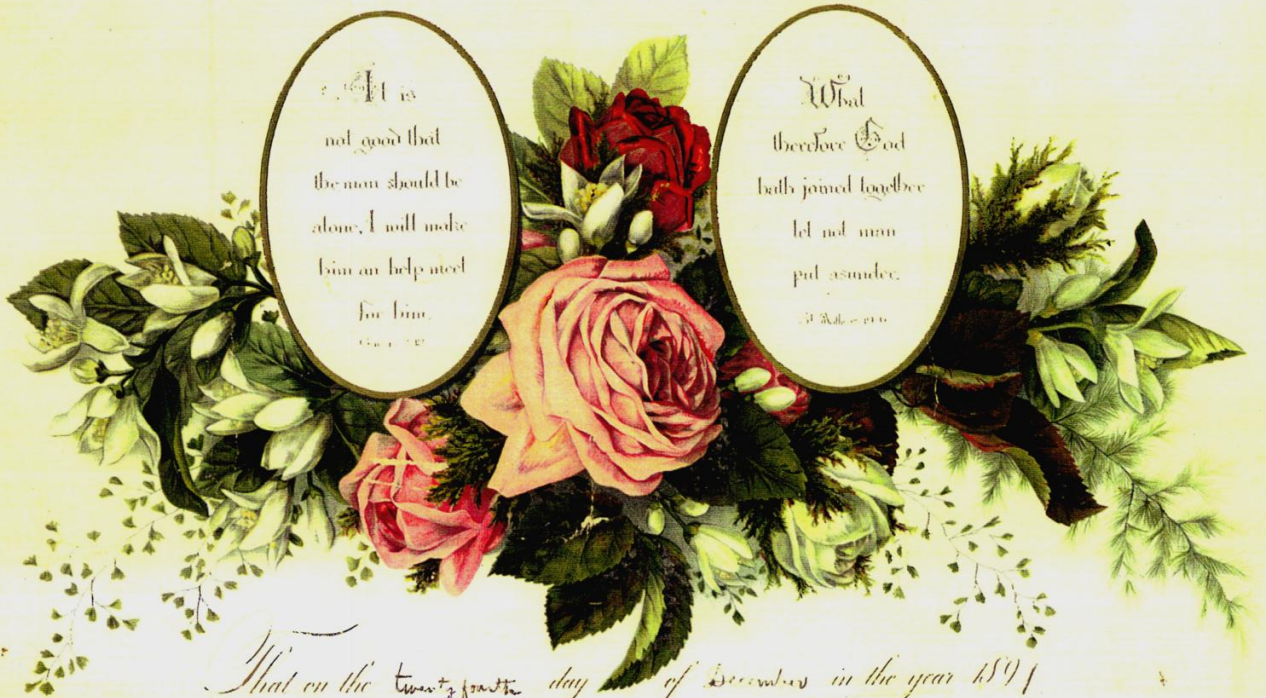 It is
not good that
the man should be
alone, I will make
him an help meet
for him.
What
therefore God
hath joined together
let not man
put asunder.
That on the twenty fourth day of December in the year 1891